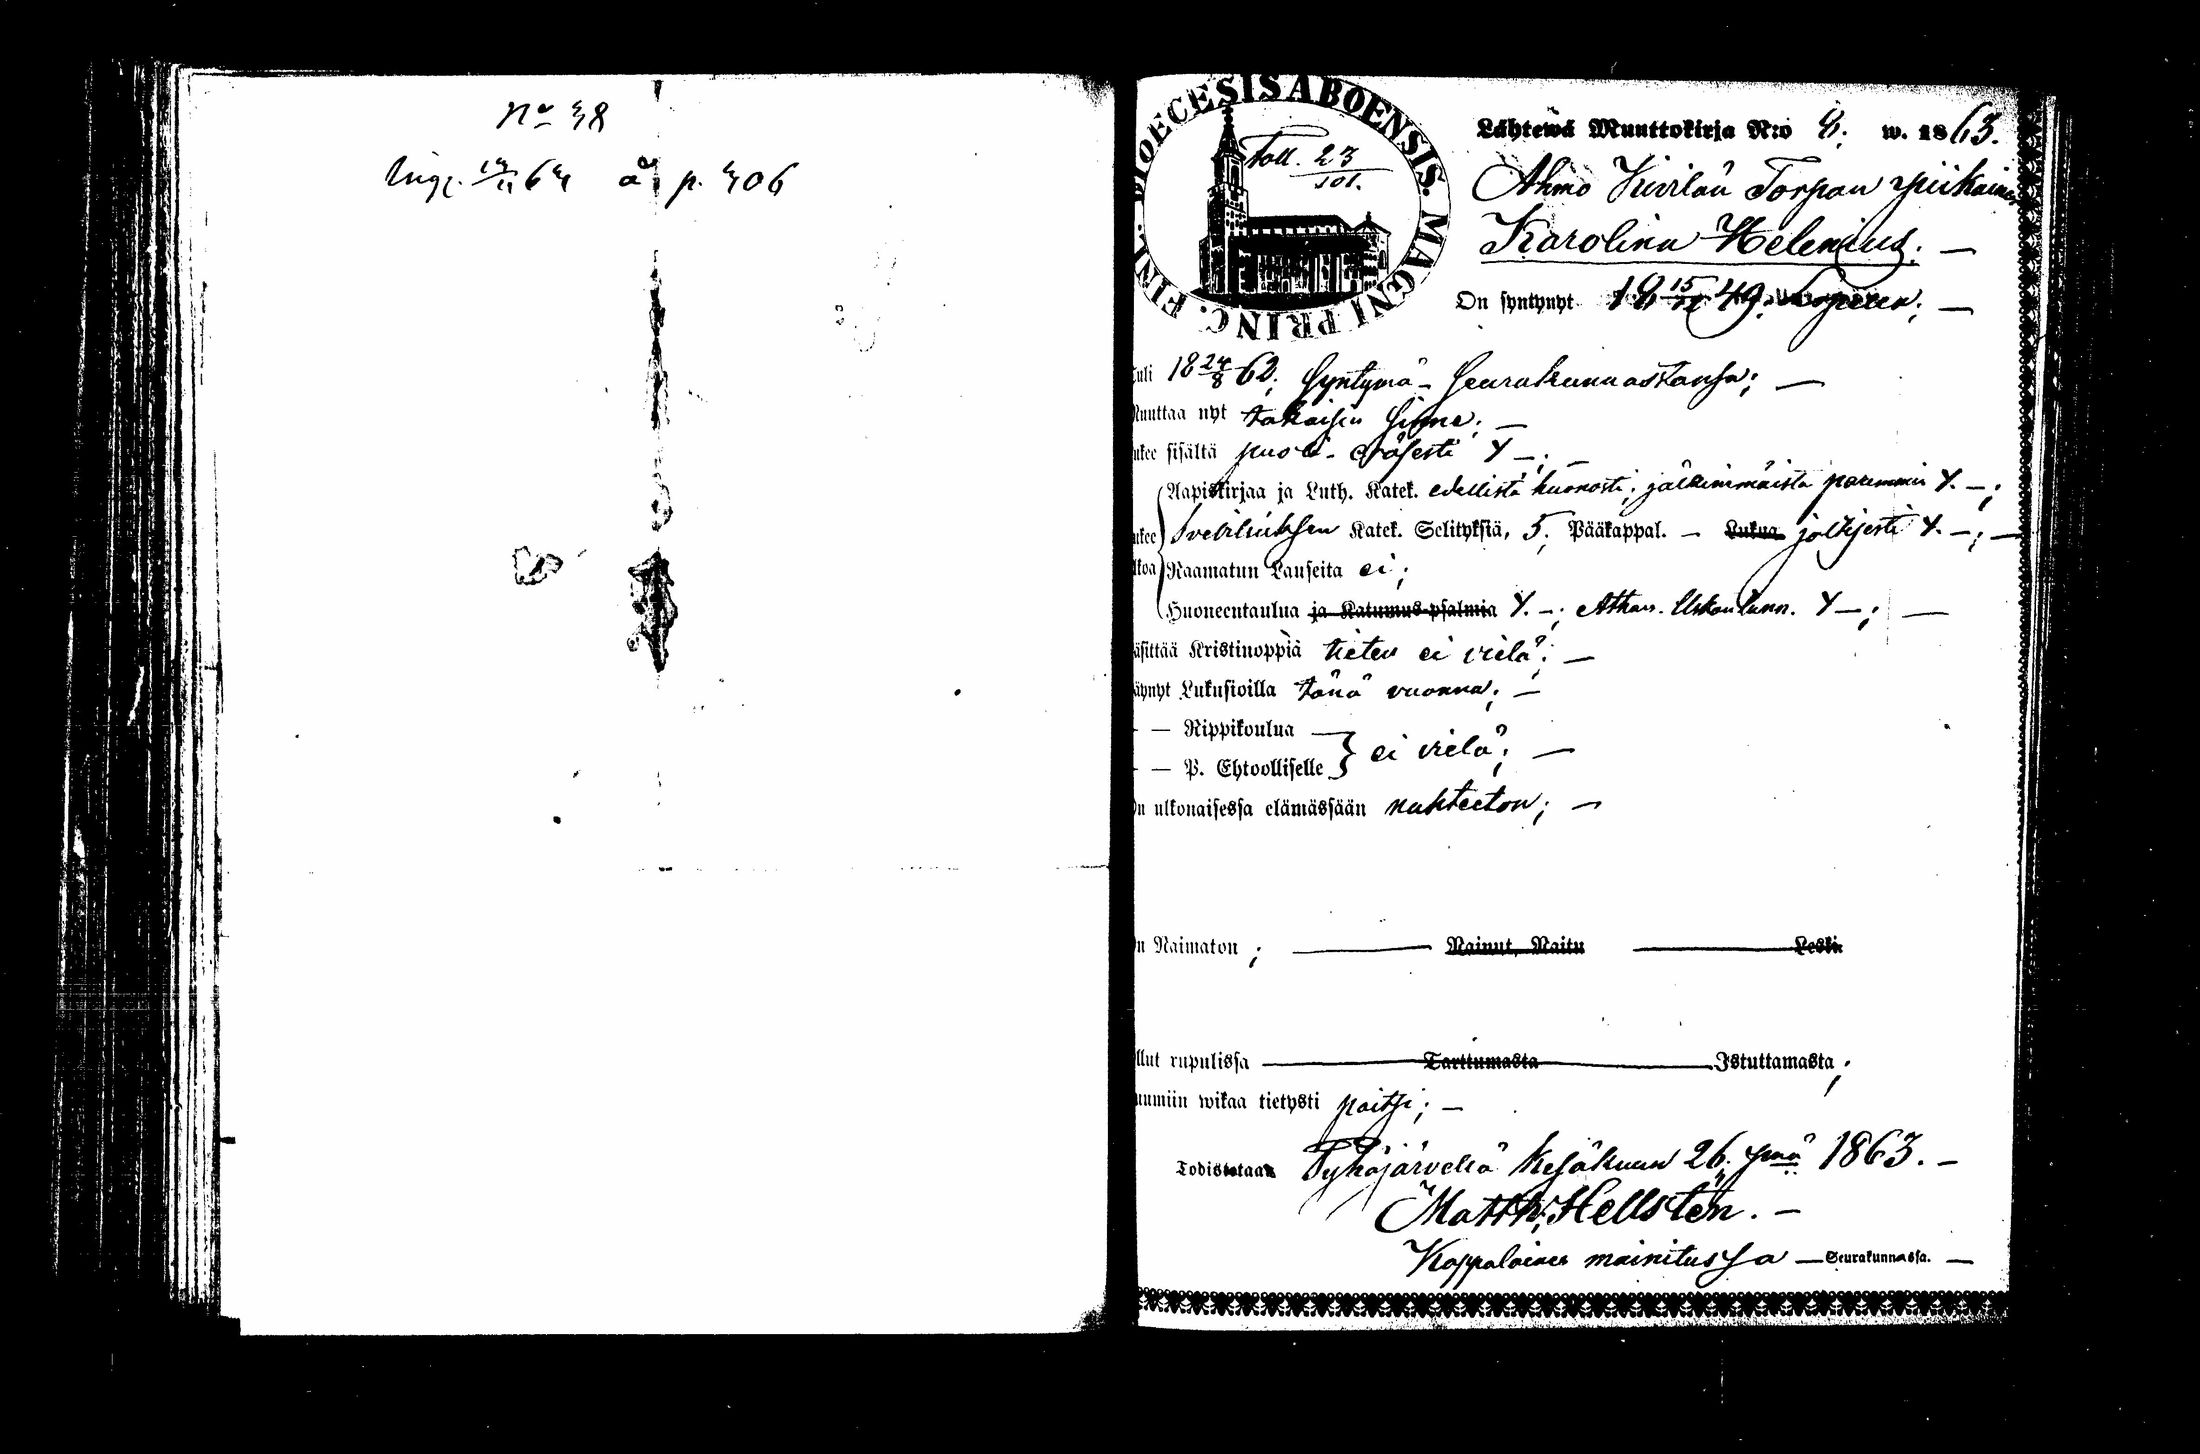 No 38
p. 406
FINL. DIOECESIS ABOENSIS. MAGNI PRINC.
Foll. 23/101.
Lähtewä Muuttokirja N:o 8. w. 1863.
Ahmo Kivilän Torpan piikainen
Karolina Helenius. —
On syntynyt 18 15/ 49. —
tuli 18 24/8 62. syntymä-Seurakunnastansa; —
Muuttaa nyt takaisin sinne; —
ukee sisältä puoli-
Aapiskirjaa ja Luth. Katek. edellistä huonosti; jälkimmäistä paremmin
ukee Svebiliuksen Katek. Selityksiä, 5. Pääkappal. — Lukua
lkoa Raamatun Lauseita ei;
Huoneentaulua ja Katumus-psalmia Athan. Uskon tunn.
äsittää Kristinoppia tieten ei vielä; —
äynyt Lukusioilla tänä vuonna; —
— Rippikoulua
ei vielä; —
— P. Ehtoolliselle
On ulkonaisessa elämässään nuhteeton; —
On Naimaton; Nainut, Naitu Leski
llut rupulissa Tarttumasta Istuttamasta;
uumiin wikaa tietysti paitsi; —
Todistetaan Pyhäjärveltä Kesäkuun 26. pnä 1863. —
Matth. Hellstén. —
Kappalainen mainitussa — Seurakunnassa. —